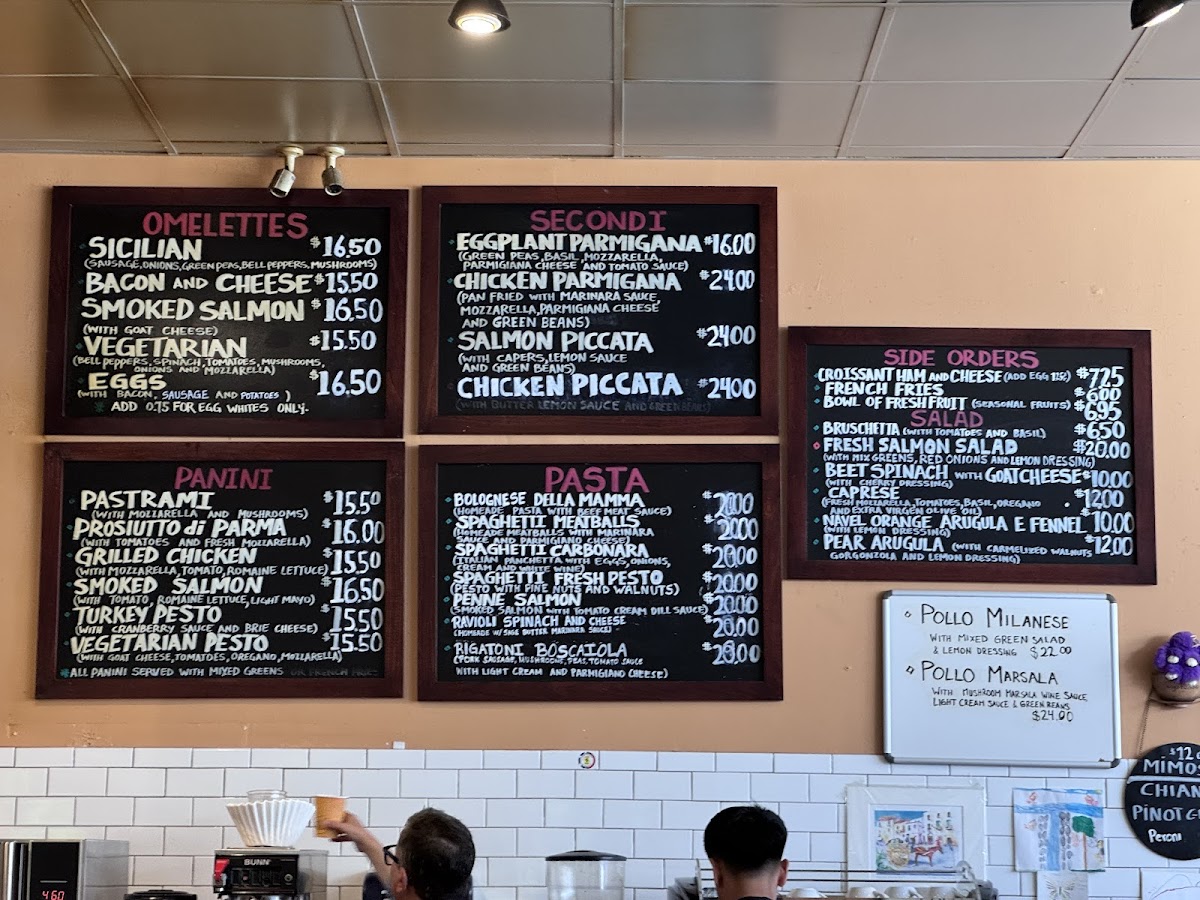 OMELETTES
SICILIAN $16.50
(SAUSAGE, ONIONS, GREEN PEAS, BELL PEPPERS, MUSHROOMS)
BACON AND CHEESE $15.50
SMOKED SALMON $16.50
(WITH GOAT CHEESE)
VEGETARIAN $15.50
(BELL PEPPERS, SPINACH, TOMATOES, MUSHROOMS,
ONIONS AND MOZZARELLA)
EGGS $16.50
(WITH BACON, SAUSAGE AND POTATOES)
ADD 0.75 FOR EGG WHITES ONLY.
SECONDI
EGGPLANT PARMIGANA $16.00
(GREEN PEAS, BASIL, MOZZARELLA,
PARMIGIANA CHEESE AND TOMATO SAUCE)
CHICKEN PARMIGANA $24.00
(PAN FRIED WITH MARINARA SAUCE,
MOZZARELLA, PARMIGIANA CHEESE
AND GREEN BEANS)
SALMON PICCATA $24.00
(WITH CAPERS, LEMON SAUCE
AND GREEN BEANS)
CHICKEN PICCATA $24.00
(WITH BUTTER LEMON SAUCE AND GREEN BEANS)
PANINI
PASTRAMI $15.50
(WITH MOZZARELLA AND MUSHROOMS)
PROSIUTTO di PARMA $16.00
(WITH TOMATOES AND FRESH MOZZARELLA)
GRILLED CHICKEN $15.50
(WITH MOZZARELLA, TOMATO, ROMAINE LETTUCE)
SMOKED SALMON $16.50
(WITH TOMATO, ROMAINE LETTUCE, LIGHT MAYO)
TURKEY PESTO $15.50
(WITH CRANBERRY SAUCE AND BRIE CHEESE)
VEGETARIAN PESTO $15.50
(WITH GOAT CHEESE, TOMATOES, OREGANO, MOZZARELLA)
ALL PANINI SERVED WITH MIXED GREENS
PASTA
BOLOGNESE DELLA MAMMA $20.00
(HOMEADE PASTA WITH BEEF MEAT SAUCE)
SPAGHETTI MEATBALLS $20.00
(HOMEADE MEATBALLS WITH MARINARA
SAUCE AND PARMIGIANO CHEESE)
SPAGHETTI CARBONARA $20.00
(ITALIAN PANCHETTA WITH EGGS, ONIONS,
CREAM AND WHITE WINE)
SPAGHETTI FRESH PESTO $20.00
(PESTO WITH PINE NUTS AND WALNUTS)
PENNE SALMON $20.00
(SMOKED SALMON WITH TOMATO CREAM DILL SAUCE)
RAVIOLI SPINACH AND CHEESE $20.00
(HOMEADE W/SAGE BUTTER MARINARA SAUCE)
RIGATONI BOSCAIOLA $20.00
(PORK SAUSAGE, MUSHROOMS, PEAS, TOMATO SAUCE
WITH LIGHT CREAM AND PARMIGIANO CHEESE)
SIDE ORDERS
CROISSANT HAM AND CHEESE (ADD EGG 1.25¢) $7.25
FRENCH FRIES $6.00
BOWL OF FRESH FRUIT (SEASONAL FRUITS) $6.95
SALAD
BRUSCHETTA (WITH TOMATOES AND BASIL) $6.50
FRESH SALMON SALAD $20.00
(WITH MIX GREENS, RED ONIONS AND LEMON DRESSING)
BEET SPINACH WITH GOAT CHEESE $10.00
(WITH CHERRY DRESSING)
CAPRESE $12.00
(FRESH MOZZARELLA, TOMATOES, BASIL, OREGANO
AND EXTRA VIRGIN OLIVE OIL)
NAVEL ORANGE ARUGULA E FENNEL 10.00
(WITH LEMON DRESSING)
PEAR ARUGULA (WITH CARMELIZED WALNUTS $12.00
GORGONZOLA AND LEMON DRESSING)
POLLO MILANESE
WITH MIXED GREEN SALAD
& LEMON DRESSING $22.00
POLLO MARSALA
WITH MUSHROOM MARSALA WINE SAUCE,
LIGHT CREAM SAUCE & GREEN BEANS
$24.00
$12
MIMOS
CHIAN
PINOT G
Peroni
BUNN
4:60